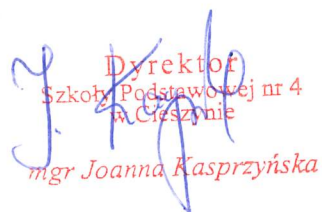 Dyrektor
Szkoły Podstawowej nr 4
w Cieszynie
mgr Joanna Kasprzyńska